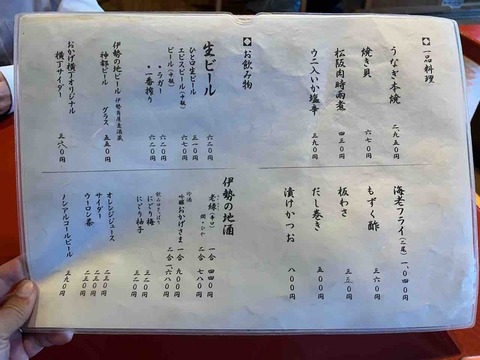 ◆一品料理
うなぎ本焼 二、九五〇円
焼き貝 六七〇円
松阪肉時雨煮 四三〇円
ウニ入いか塩辛 三九〇円
海老フライ（二尾） 一、〇四〇円
もずく酢 三六〇円
板わさ 三三〇円
だし巻き 五〇〇円
漬けかつお 八〇〇円
◆お飲み物
生ビール 六二〇円
ひと口生ビール 三一〇円
ヱビスビール（中瓶） 六七〇円
ビール（中瓶）
・ラガー 六二〇円
・一番搾り 六二〇円
伊勢の地ビール 伊勢角屋麦酒蔵
神都ビール グラス 五五〇円
おかげ横丁オリジナル
横丁サイダー 三六〇円
伊勢の地酒
老緑（辛口） 一合 四四〇円
燗・ひや 二合 七八〇円
冷酒
吟醸おかげさま 一合 九〇〇円
二合 一、六八〇円
にごり梅 三二〇円
にごり柚子 三二〇円
オレンジジュース 二五〇円
サイダー 二五〇円
ウーロン茶 二五〇円
ノンアルコールビール 三九〇円